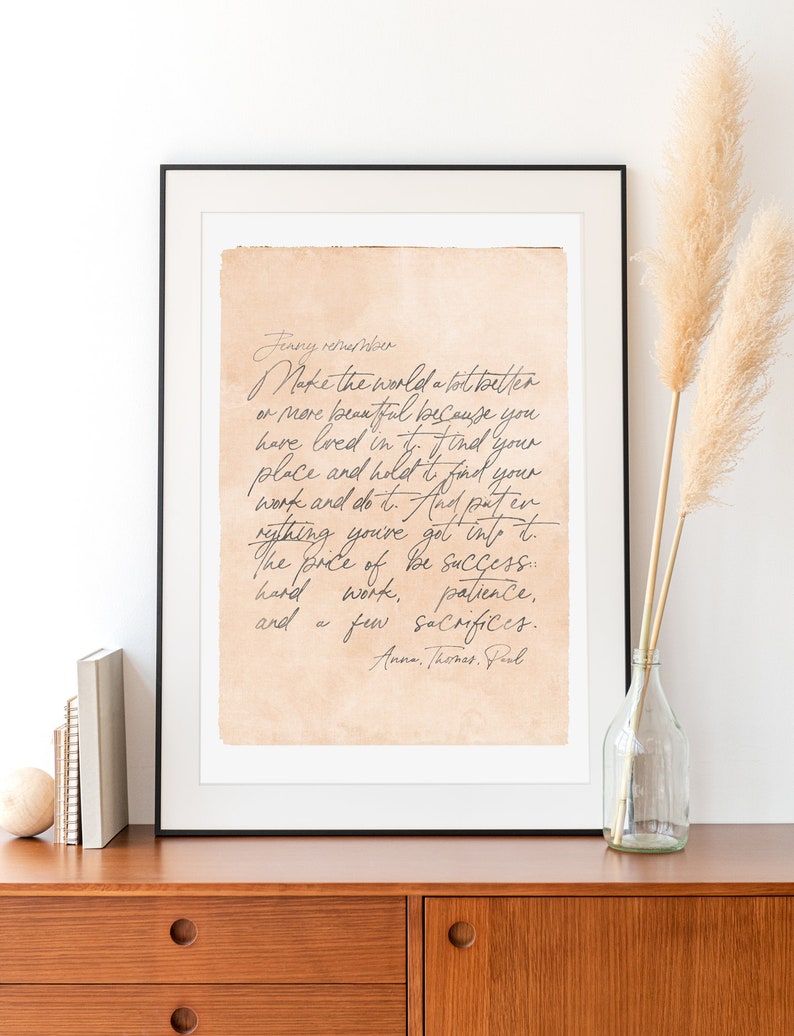 Jenny remember
Make the world a bit better
or more beautful because you
have lived in it. find your
place and hold it. find your
work and do it. And put ev
rything you've got into it.
The price of be success::
hard work, patience,
and a few sacrifices.
Anna, Thomas, Paul